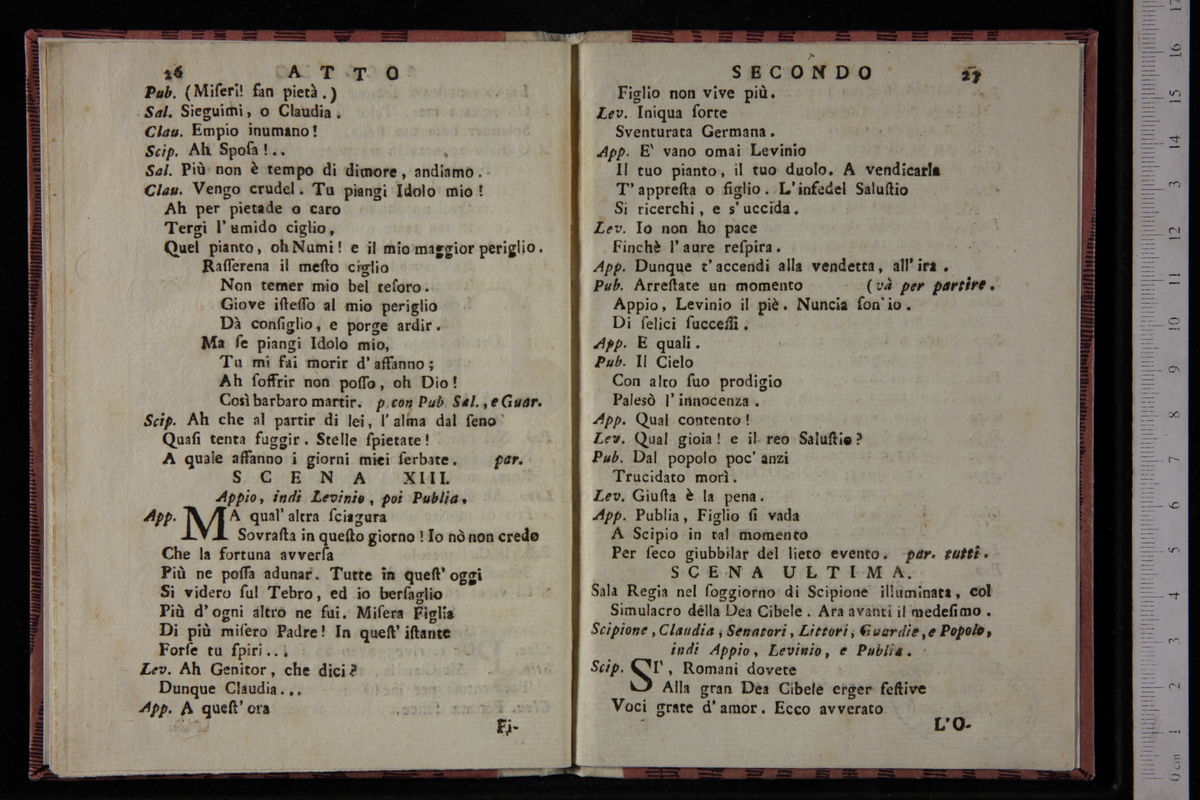 26 ATTO
Pub. (Miſeri! fan pietà.)
Sal. Sieguimi, o Claudia.
Clau. Empio inumano!
Scip. Ah Spoſa!..
Sal. Più non è tempo di dimore, andiamo.
Clau. Vengo crudel. Tu piangi Idolo mio!
Ah per pietade o caro
Tergi l'umido ciglio,
Quel pianto, oh Numi! e il mio maggior periglio.
Raſſerena il meſto ciglio
Non temer mio bel teſoro.
Giove iſteſſo al mio periglio
Dà conſiglio, e porge ardir.
Ma ſe piangi Idolo mio,
Tu mi fai morir d'affanno;
Ah ſoffrir non poſſo, oh Dio!
Così barbaro martir. p. con Pub. Sal., e Guar.
Scip. Ah che al partir di lei, l'alma dal ſeno
Quaſi tenta fuggir. Stelle ſpietate!
A quale affanno i giorni miei ſerbate. par.
SCENA XIII.
Appio, indi Levinio, poi Publia.
App. MA qual'altra ſciagura
Sovraſta in queſto giorno! Io nò non credo
Che la fortuna avverſa
Più ne poſſa adunar. Tutte in queſt'oggi
Si videro ſul Tebro, ed io berſaglio
Più d'ogni altro ne fui. Miſera Figlia
Di più miſero Padre! In queſt'iſtante
Forſe tu ſpiri...
Lev. Ah Genitor, che dici?
Dunque Claudia...
App. A queſt'ora
Fi-
SECONDO 27
Figlio non vive più.
Lev. Iniqua ſorte
Sventurata Germana.
App. E' vano omai Levinio
Il tuo pianto, il tuo duolo. A vendicarla
T'appreſta o figlio. L'infedel Saluſtio
Si ricerchi, e s'uccida.
Lev. Io non ho pace
Finchè l'aure reſpira.
App. Dunque t'accendi alla vendetta, all'ira.
Pub. Arreſtate un momento (và per partire.
Appio, Levinio il piè. Nuncia ſon'io.
Di felici ſucceſſi.
App. E quali.
Pub. Il Cielo
Con alto ſuo prodigio
Palesò l'innocenza.
App. Qual contento!
Lev. Qual gioia! e il reo Saluſtio?
Pub. Dal popolo poc'anzi
Trucidato morì.
Lev. Giuſta è la pena.
App. Publia, Figlio ſi vada
A Scipio in tal momento
Per ſeco giubbilar del lieto evento. par. tutti.
SCENA ULTIMA.
Sala Regia nel ſoggiorno di Scipione illuminata, col
Simulacro della Dea Cibele. Ara avanti il medeſimo.
Scipione, Claudia, Senatori, Littori, Guardie, e Popolo,
indi Appio, Levinio, e Publia.
Scip. SI', Romani dovete
Alla gran Dea Cibele erger feſtive
Voci grate d'amor. Ecco avverato
L'O-
0 cm 1 2 3 4 5 6 7 8 9 10 11 12 13 14 15 16 17